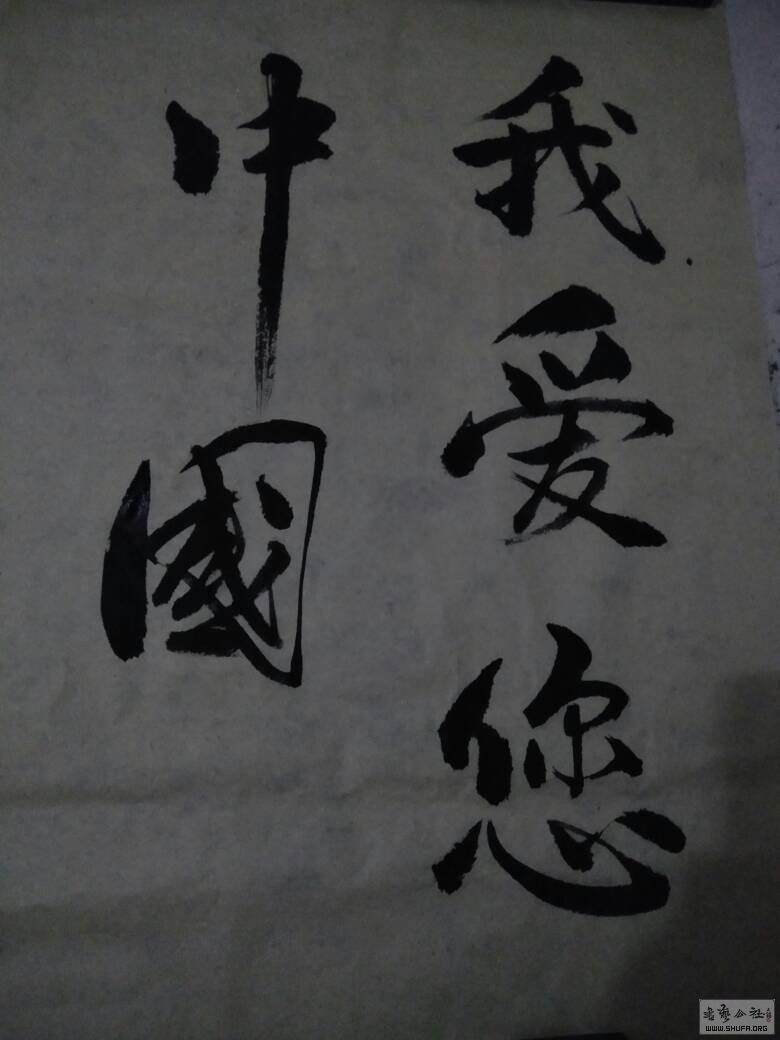 我爱您
中國
WWW.SHUFA.ORG